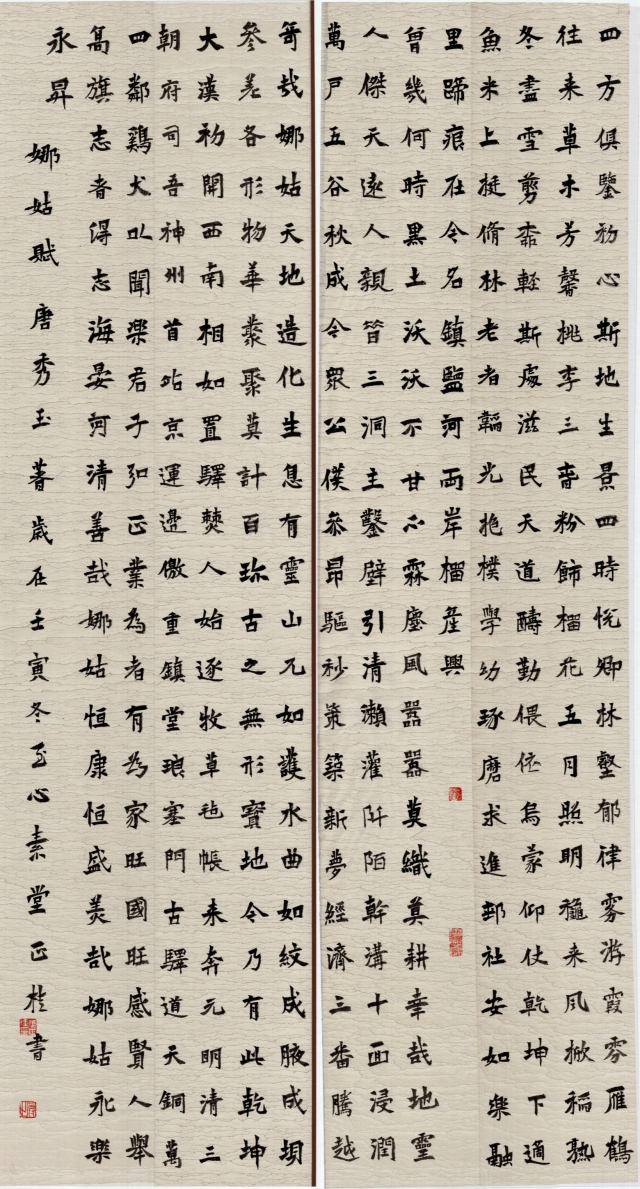 四方俱鑒初心斯地生景四時悅卿林壑郁律雾游霞雰雁鶴
往来草木芳馨桃李三春粉飾榴花五月照明穐来風掀稲熟
冬盡雪剪霖輕斯處滋民天道酬勤偎依烏蒙仰仗乾坤下適
魚米上挺脩林老者韜光抱樸學幼琢磨求進邨社安如樂融
里蹄痕在令名鎮鹽河兩岸榴産興
曾幾何時黑土沃沃不甘心霖塵風囂囂莫織莫耕幸哉地靈
人傑天遂人親管三洞主鑿壁引清瀨灌阡陌幹溝十面浸潤
萬戸五谷秋成令眾公僕泰昂驅秒策築新夢經濟三番騰越
奇哉娜姑天地造化生息有靈山兀如護水曲如紋成腋成垻
参差各形物華叢聚莫計百珎古之無形寶地今乃有此乾坤
大漢初開西南相如置驛僰人始逐牧草毡帳来奔元明清三
朝府司吾神州首站京運邊徼重鎮堂琅塞門古驛道天銅萬
四鄰鷄犬以聞樂君子弘正業為者有為家旺國旺感賢人舉
高旗志者得志海晏河清善哉娜姑恒康恒盛美哉娜姑永樂
永昇
娜姑賦 唐秀玉著歲在壬寅冬至心素堂正桂書